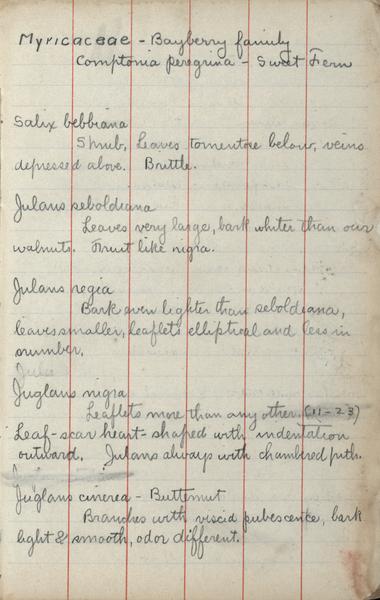 Myricaceae - Bayberry family
Comptonia peregrina - Sweet Fern
Salix bebbiana
Shrub, Leaves tomentose below, veins
depressed above. Brittle.
Julans seboldiana
Leaves very large, bark whiter than our
walnuts. Fruit like nigra.
Julans regia
Bark even lighter than seboldiana,
leaves smaller, leaflets elliptical and less in
number.
Juglans nigra
Leaflets more than any other. (11-23)
Leaf-scar heart-shaped with indentation
outward. Julans always with chambered pith.
Juglans cinerea - Butternut
Branches with viscid pubescence, bark
light & smooth, odor different.